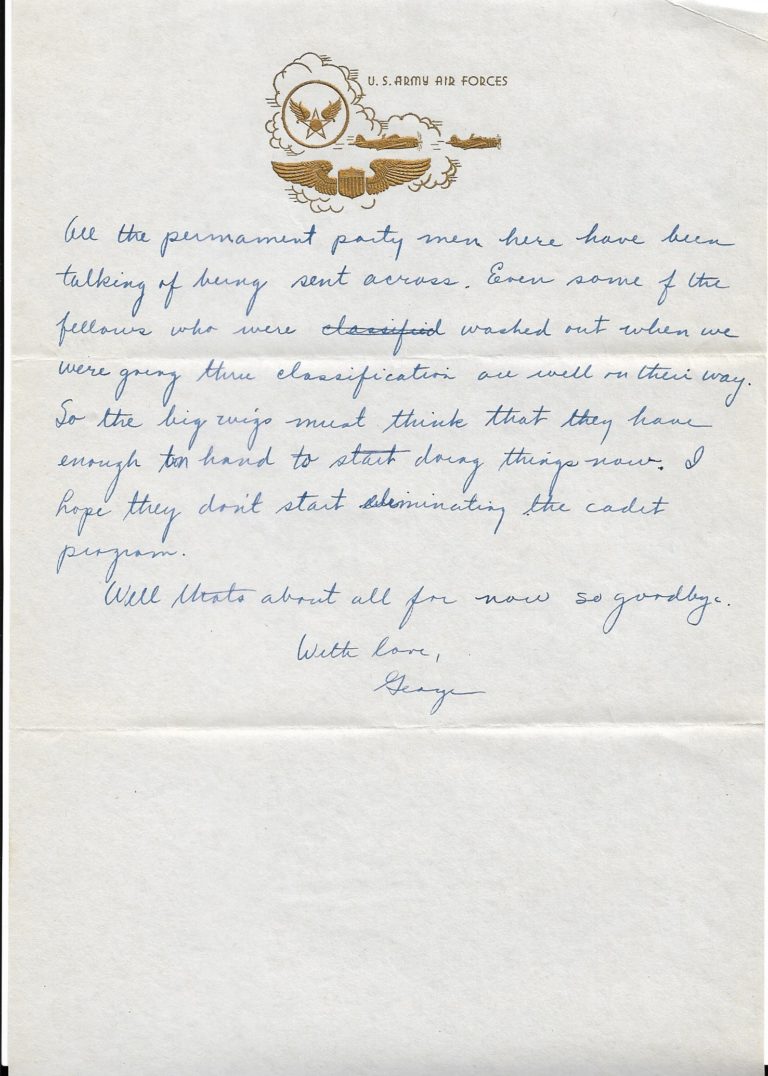 U. S. ARMY AIR FORCES
All the permament party men here have been
talking of being sent across. Even some of the
fellows who were classified washed out when we
were going thru classification are well on their way.
So the big wigs must think that they have
enough on hand to start doing things now. I
hope they don't start eliminating the cadet
program.
Well thats about all for now so goodbye.
With love,
George